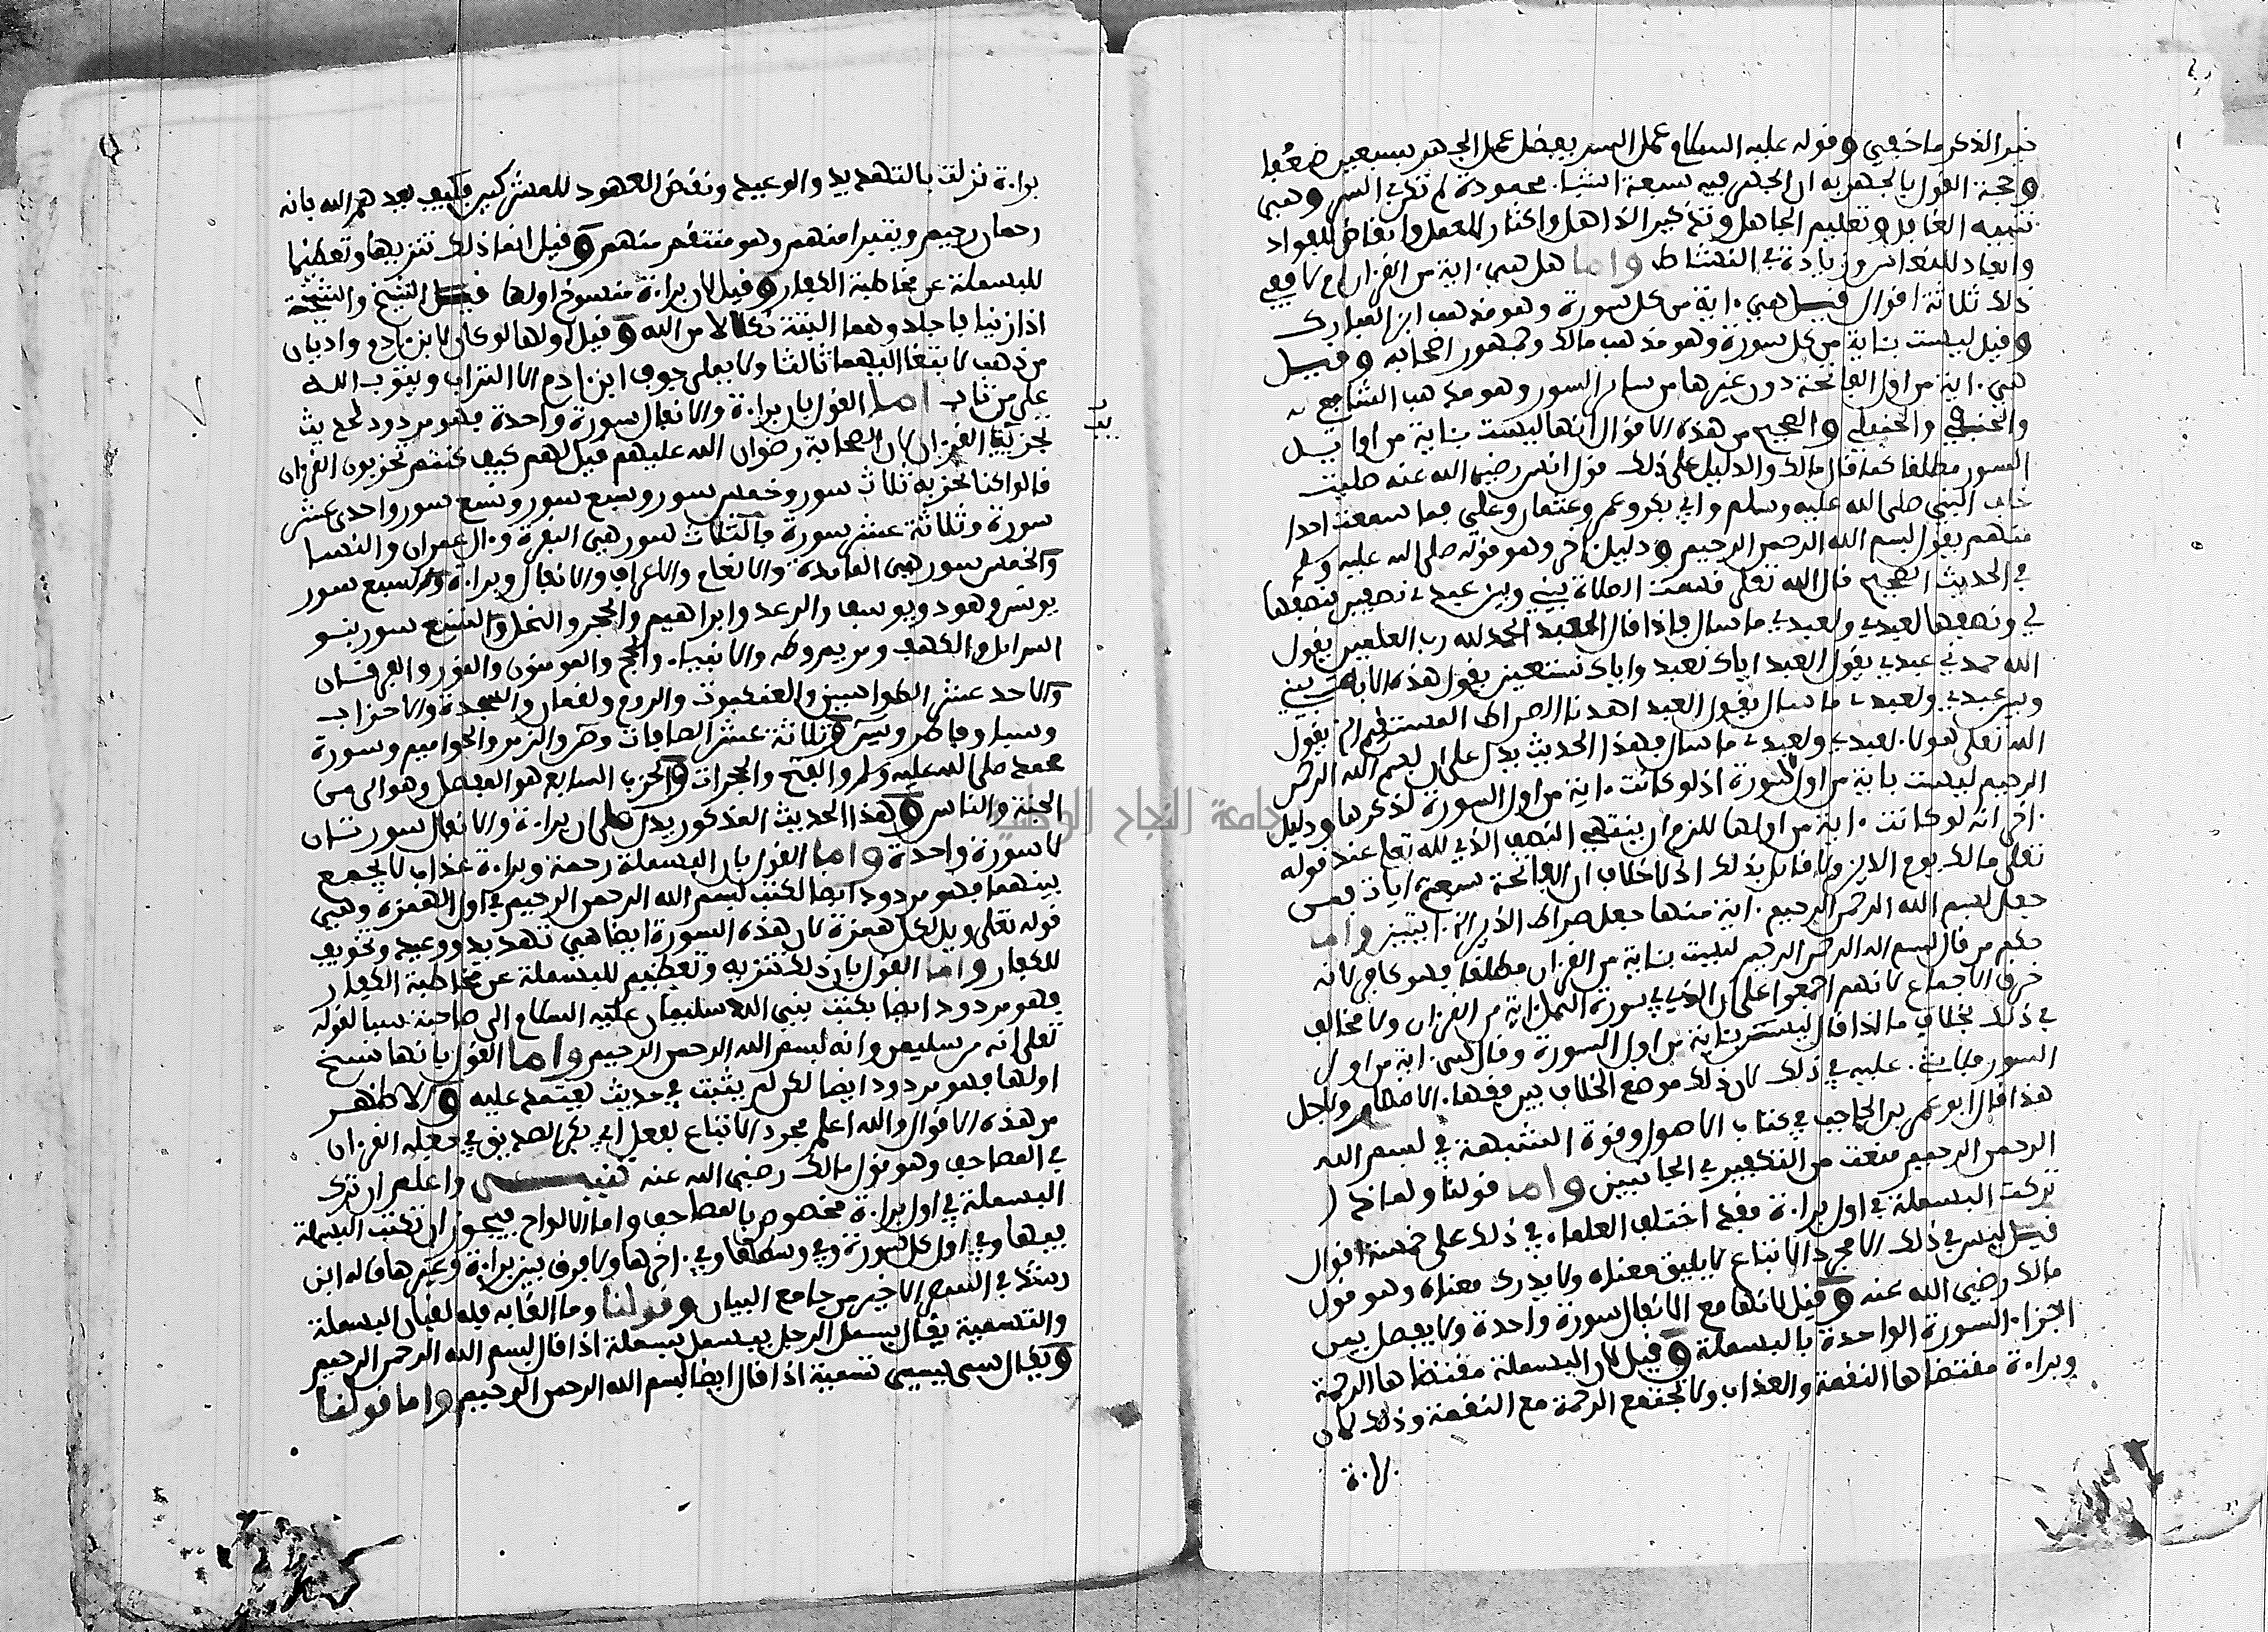 خير الذكر ما خفي وقوله عليه السلام عمل السر يفضل عمل الجهر بسبعين ضعفا
وحجة القول بالجهر به ان الجهر فيه سبعة اشياء محمودة لم تكن في السر وهي
تنبيه الغافل وتعليم الجاهل وتذكير الذاهل واكثار للعمل وانفاض للفواد
وابعاد للنعاس وزيادة في النشاط واما هل هي ءاية من القرءان ام لا ففي
ذلك ثلاثة اقوال قيل هي ءاية من كل سورة وهو مذهب ابن المبارك
وقيل ليست بئاية من كل سورة وهو مذهب مالك وجمهور اصحابه وقيل
هي ءاية من اول الفاتحة دون غيرها من سائر السور وهو مذهب الشافعي
والحنفي والحنبلي والصحيح من هذه الاقوال انها ليست بئاية من اوايل
السور مطلقا كما قال مالك والدليل على ذلك قول انس رضي الله عنه صليت
خلف النبي صلى الله عليه وسلم وابي بكر وعمر وعثمان وعلي فما سمعت احدا
منهم يقول بسم الله الرحمن الرحيم ودليل ءاخر وهو قوله صلى الله عليه وسلم
في الحديث الصحيح قال الله تعلى قسمت الصلاة بيني وبين عبدي نصفين فنصفها
لي ونصفها لعبدي ولعبدي ما سال فاذا قال العبد الحمد لله رب العلمين يقول
الله حمدني عبدي يقول العبد اياك نعبد واياك نستعين يقول هذه الاية بيني
وبين عبدي ولعبدي ما سال يقول العبد اهدنا الصراط المستقيم الخ يقول
الله تعلى هولاء لعبدي ولعبدي ما سال فهذا الحديث يدل على ان بسم الله الرحمن
الرحيم ليست باية من اول السورة اذ لو كانت ءاية من اول السورة لذكرها ودليل
ءاخر انه لو كانت ءاية من اولها للزم ان ينتهي النصف الذي لله تعلى عند قوله
تعلى مالك يوم الدين ولا قائل بذلك اذ لا خلاف ان الفاتحة سبع ءايات فمن
جعل بسم الله الرحمن الرحيم ءاية منها جعل صراط الذين الخ ءايتين واما
حكم من قال بسم الله الرحمن الرحيم ليست بئاية من القرءان مطلقا فهو كافر لانه
خرق الاجماع لانهم اجمعوا على ان الذي في سورة النمل ءاية من القرءان ولا مخالف
في ذلك بخلاف ما اذا قال ليست بئاية من اول السورة وقال هي ءاية من اول
السور فلا شيء عليه في ذلك لان ذلك موضع الخلاف بين فقهاء الامصار ولاجل
هذا قال ابو عمر بن الحاجب في كتاب الاصول وقوة الشبهة في بسم الله
الرحمن الرحيم منعت من التكفير في الجانبين واما قولنا ولماذا
تركت البسملة في اول براءة فقد اختلف العلماء في ذلك على خمسة اقوال
قيل ليس في ذلك الا مجرد الاتباع لا يليق معناه ولا يدرى معناه وهو قول
مالك رضي الله عنه وقيل لانها مع الانفال سورة واحدة ولا يفصل بين
اجزاء السورة الواحدة بالبسملة وقيل لان البسملة مقتضاها الرحمة
وبراءة مقتضاها النقمة والعذاب ولا تجتمع الرحمة مع النقمة وذلك لان
براءة
براءة نزلت بالتهديد والوعيد ونقض العهود للمشركين فكيف يعدهم الله بانه
رحمان رحيم ويتبرا منهم وهو منتقم منهم وقيل انما ذلك تنزيها وتعظيما
للبسملة عن مخاطبة الكفار وقيل لان براءة منسوخ اولها قيل الشيخ والشيخة
اذا زنيا فاجلدوهما البتة نكالا من الله وقيل اولها لو كان لابن ءادم واديان
من ذهب لابتغا اليهما ثالثا ولا يملى جوف ابن ءادم الا التراب ويتوب الله
على من تاب اما القول بان براءة والانفال سورة واحدة فهو مردود لحديث
تحزيب القرءان لان الصحابة رضوان الله عليهم قيل لهم كيف كنتم تحزبون القرءان
قالوا كنا نحزبه ثلاث سور وخمس سور وسبع سور وتسع سور واحدى عشر
سورة وثلاثة عشر سورة فالثلاث سور هي البقرة وءال عمران والنسا
والخمس سور هي المائدة والانعام والاعراف والانفال وبراءة والسبع سور
يونس وهود ويوسف والرعد وابراهيم والحجر والنحل والتسع سور بنو
اسرائل والكهف ومريم وطه والانبياء والحج والمومنون والنور والفرقان
والاحد عشر الطواسين والعنكبوت والروم ولقمان والسجدة والاحزاب
وسبا وفاطر ويس وثلاثة عشر الصافات وص والزمر والحواميم وسورة
محمد صلى الله عليه وسلم والفتح والحجرات والحزب السابع هو المفصل وهو الى من
الجنة والناس وهذا الحديث المذكور يدل على ان براءة والانفال سورتان
لا سورة واحدة واما القول بان البسملة رحمة وبراءة عذاب لا يجمع
بينهما فهو مردود ايضا لكتب بسم الله الرحمن الرحيم في اول الهمزة وهي
قوله تعلى ويل لكل همزة لان هذه السورة ايضا هي تهديد ووعيد وتخويف
للكفار واما القول بان ذلك تنزيه وتعظيم للبسملة عن مخاطبة الكفار
فهو مردود ايضا بكتب نبي الله سليمان عليه السلام الى صاحبة سبا لقوله
تعلى انه من سليمن وانه بسم الله الرحمن الرحيم واما القول بانها نسخ
اولها فهو مردود ايضا لكن لم يثبت في حديث يعتمد عليه والاظهر
من هذه الاقوال والله اعلم مجرد الاتباع لفعل ابي بكر الصديق في جعله القرءان
في المصاحف وهو قول مالك رضي الله عنه تنبيه واعلم ان ترك
البسملة في اول براءة مخصوص بالمصاحف واما الالواح فيجوز ان تكتب البسملة
فيها وفي اول كل سورة وفي وسطها وفي ءاخرها ولا فرق بين براءة وغيرها قاله ابن
رشد في السفر الاخير من جامع البيان وقولنا وما القابه فله لقبان البسملة
والتسمية يقال بسمل الرجل يبسمل بسملة اذا قال بسم الله الرحمن الرحيم
ويقال سمى يسمي تسمية اذا قال ايضا بسم الله الرحمن الرحيم واما قولنا
جامعة النجاح الوطنية